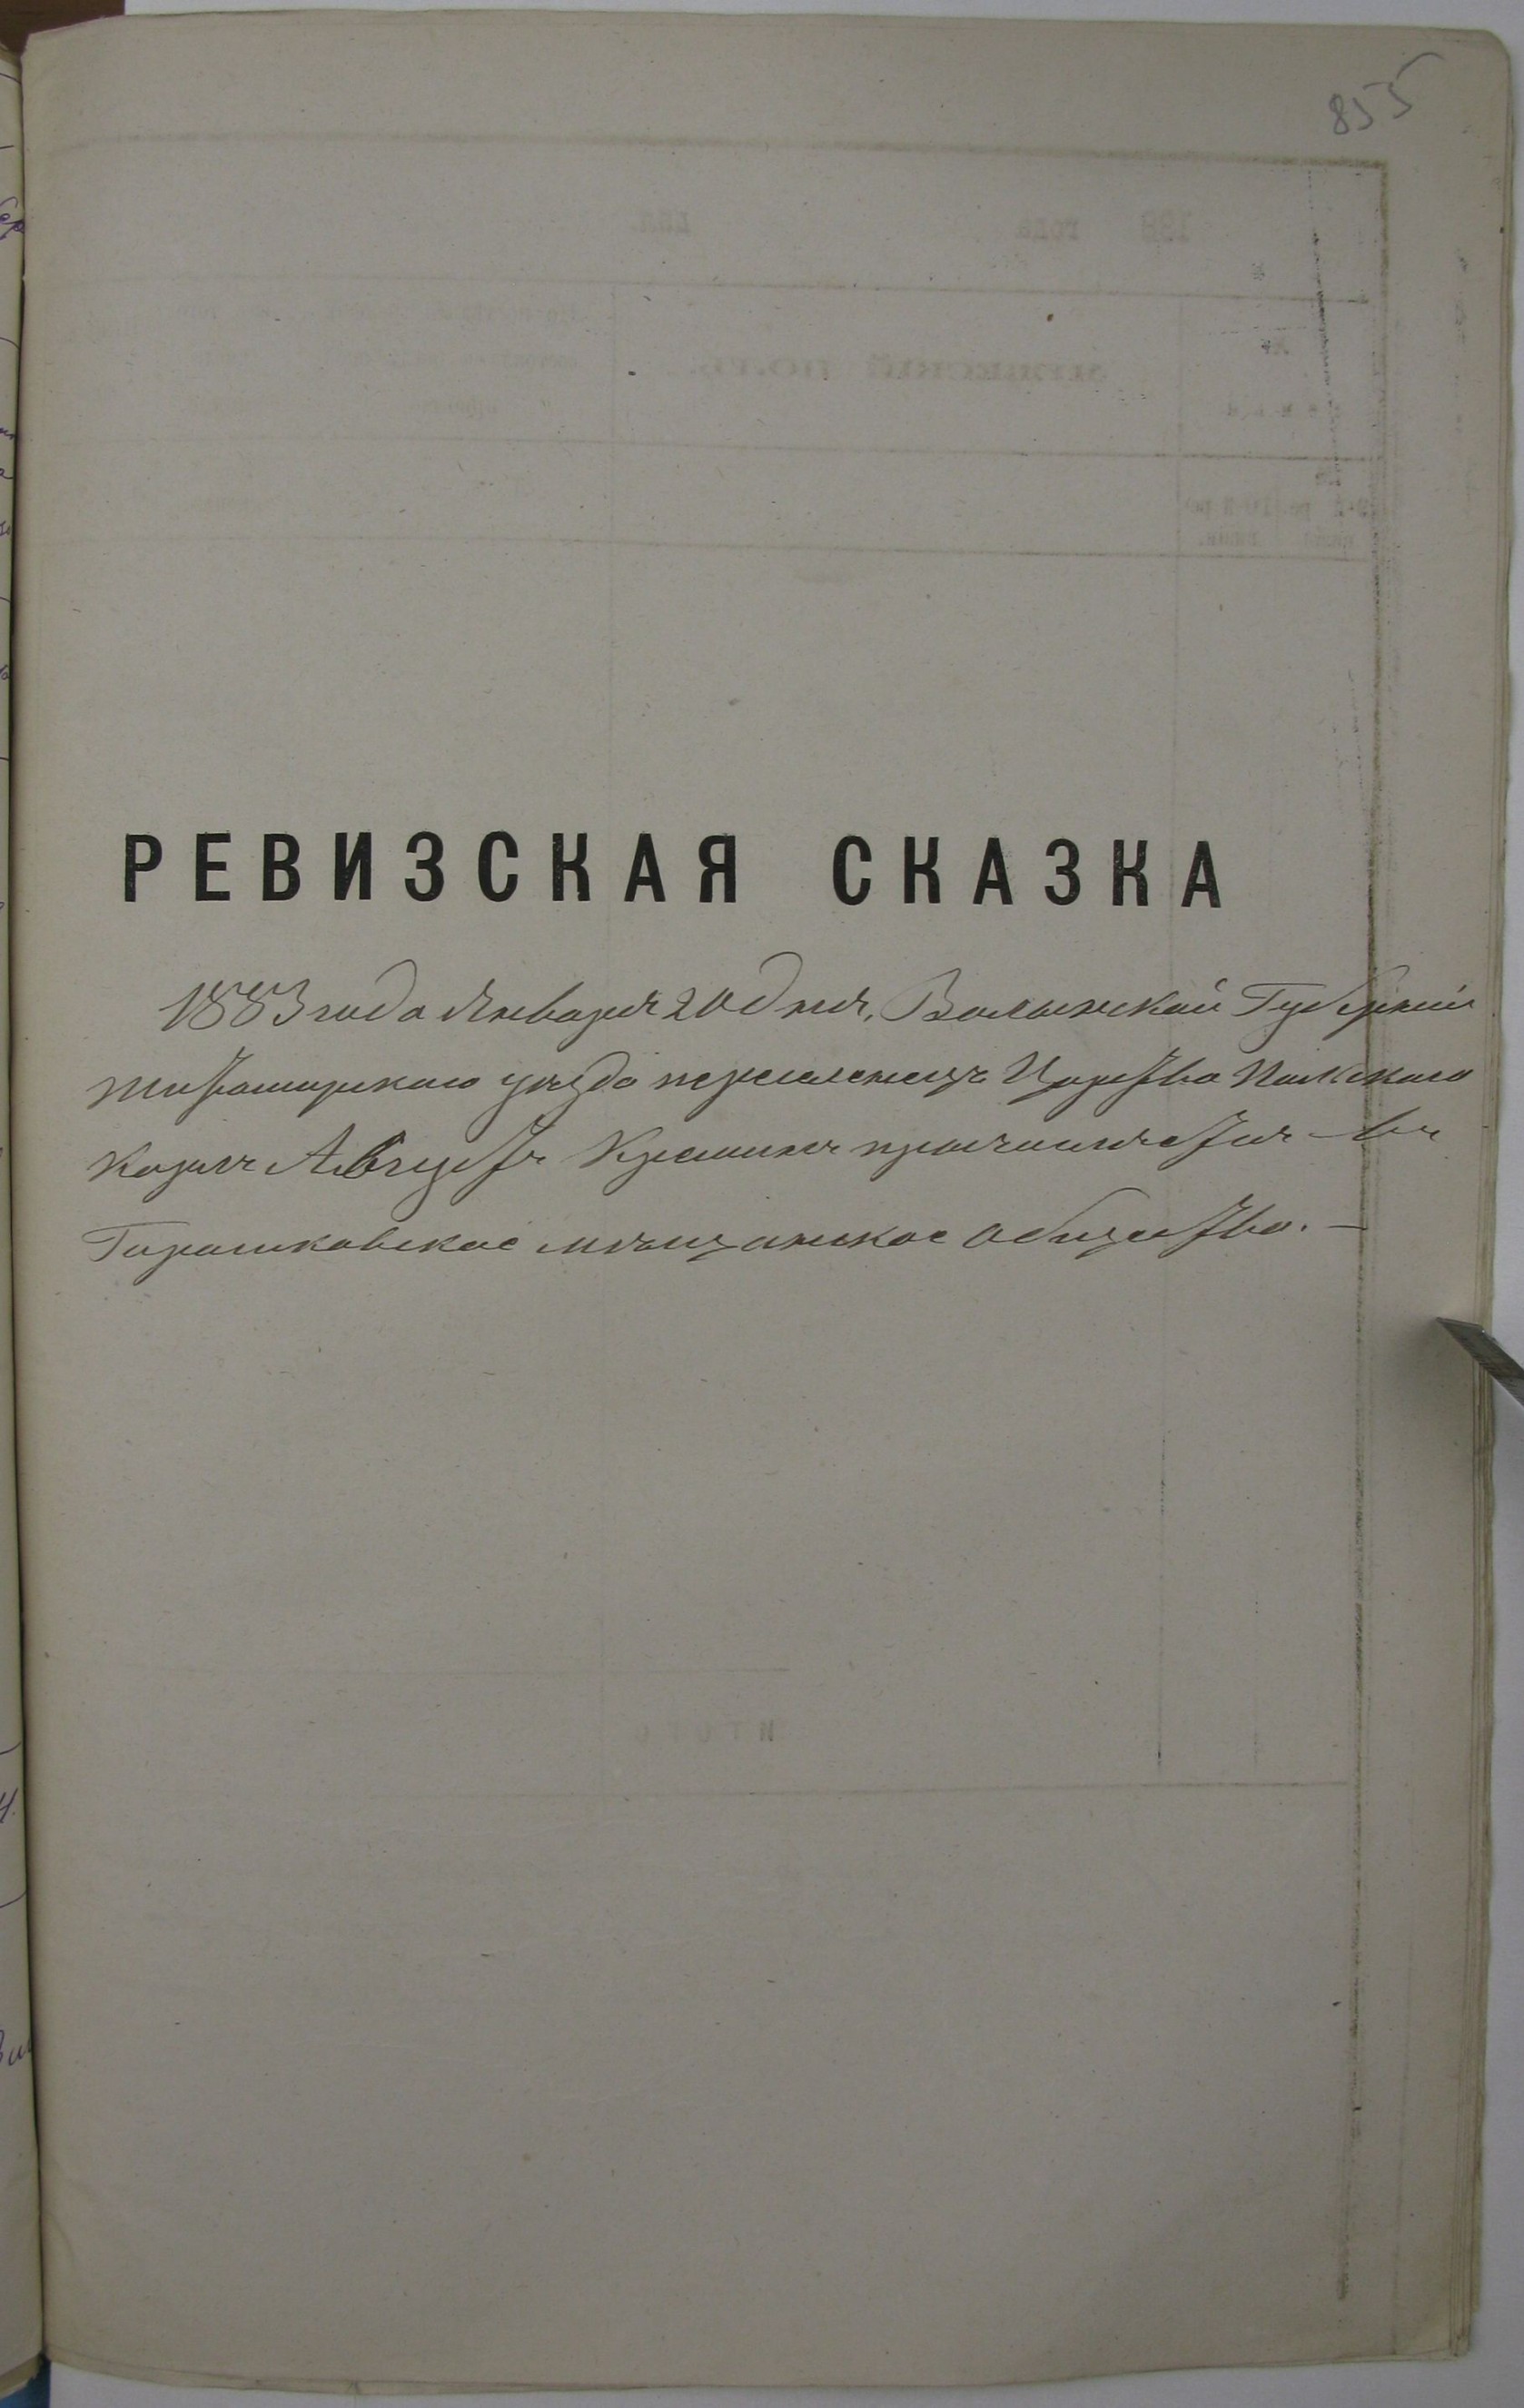 855
РЕВИЗСКАЯ СКАЗКА
1883 года Января 20 дня, Волынской Губернии
Житомирского уѣзда переселенецъ Царства Польского
Карлъ Августъ Кремингъ причисляется въ
Горошковское мѣщанское общество. —